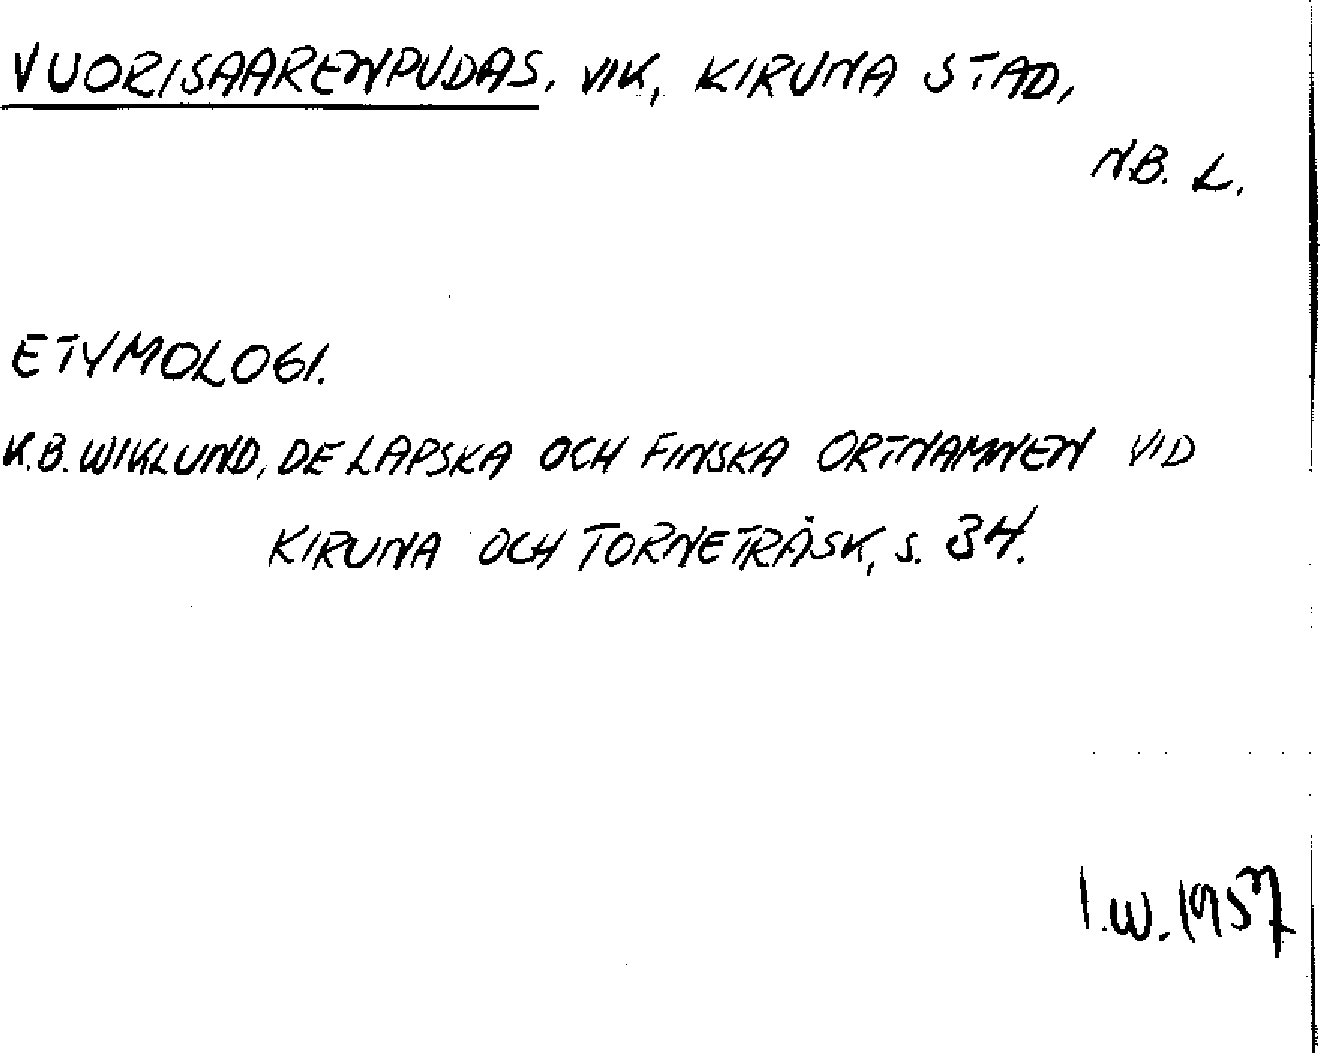 VUORISAARENPUDAS, VIK, KIRUNA STAD,
N.B. L.
ETYMOLOGI.
K.B. WIKLUND, DE LAPSKA OCH FINSKA ORTNAMNEN VID
KIRUNA OCH TORNETRÄSK, S. 34.
I.W. 1957